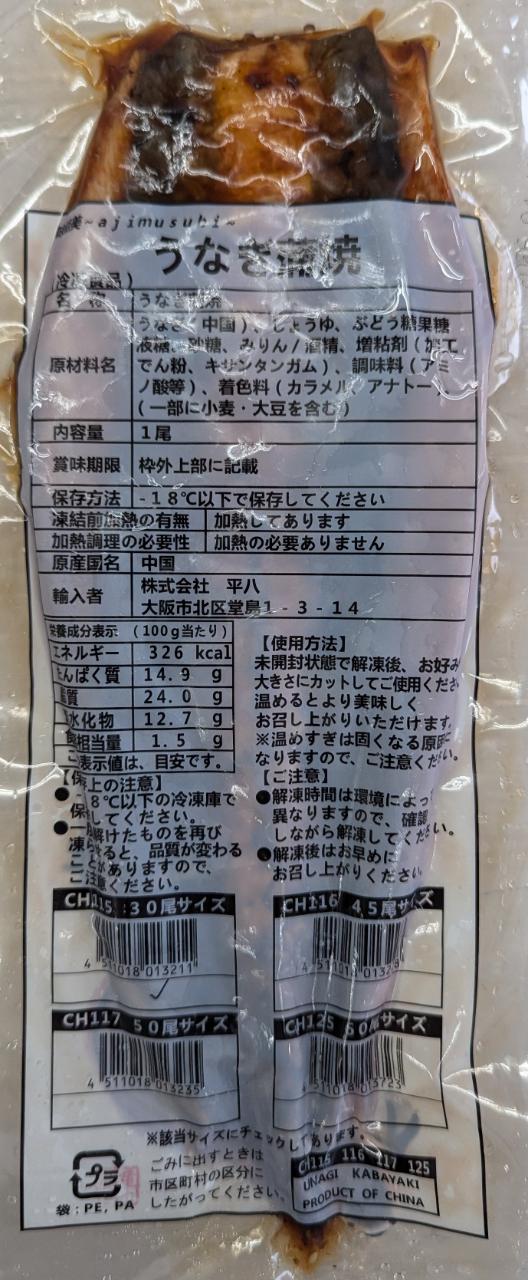 ~ajimusubi~
うなぎ蒲焼
冷凍食品)
名 物 うなぎ蒲焼
原材料名 うなぎ(中国)、しょうゆ、ぶどう糖果糖
液糖、砂糖、みりん/酒精、増粘剤(加工
でん粉、キサンタンガム)、調味料(アミ
ノ酸等)、着色料(カラメル、アナトー)
(一部に小麦・大豆を含む)
内容量 1尾
賞味期限 枠外上部に記載
保存方法 -18℃以下で保存してください
凍結前加熱の有無 加熱してあります
加熱調理の必要性 加熱の必要ありません
原産国名 中国
輸入者 株式会社 平八
大阪市北区堂島1-3-14
栄養成分表示 (100g当たり)
エネルギー 326 kcal
たんぱく質 14.9 g
脂質 24.0 g
炭水化物 12.7 g
食塩相当量 1.5 g
この表示値は、目安です。
【保存上の注意】
●-18℃以下の冷凍庫で
保存してください。
●一度解けたものを再び
凍らせると、品質が変わる
ことがありますので、
ご注意ください。
【使用方法】
未開封状態で解凍後、お好み
大きさにカットしてご使用ください
温めるとより美味しく
お召し上がりいただけます。
※温めすぎは固くなる原因に
なりますので、ご注意ください。
【ご注意】
●解凍時間は環境によって
異なりますので、確認
しながら解凍してください。
●解凍後はお早めに
お召し上がりください。
CH115 30尾サイズ
4 511018 013211
CH116 45尾サイズ
4 511018
CH117 50尾サイズ
4 511018 013235
CH125 60尾サイズ
4 511018 013723
※該当サイズにチェックしてあります。
プラ
袋:PE, PA
ごみに出すときは
市区町村の区分に
したがってください。
CH115 116 117 125
UNAGI KABAYAKI
PRODUCT OF CHINA